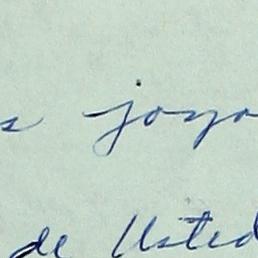 s joyo
de Usted